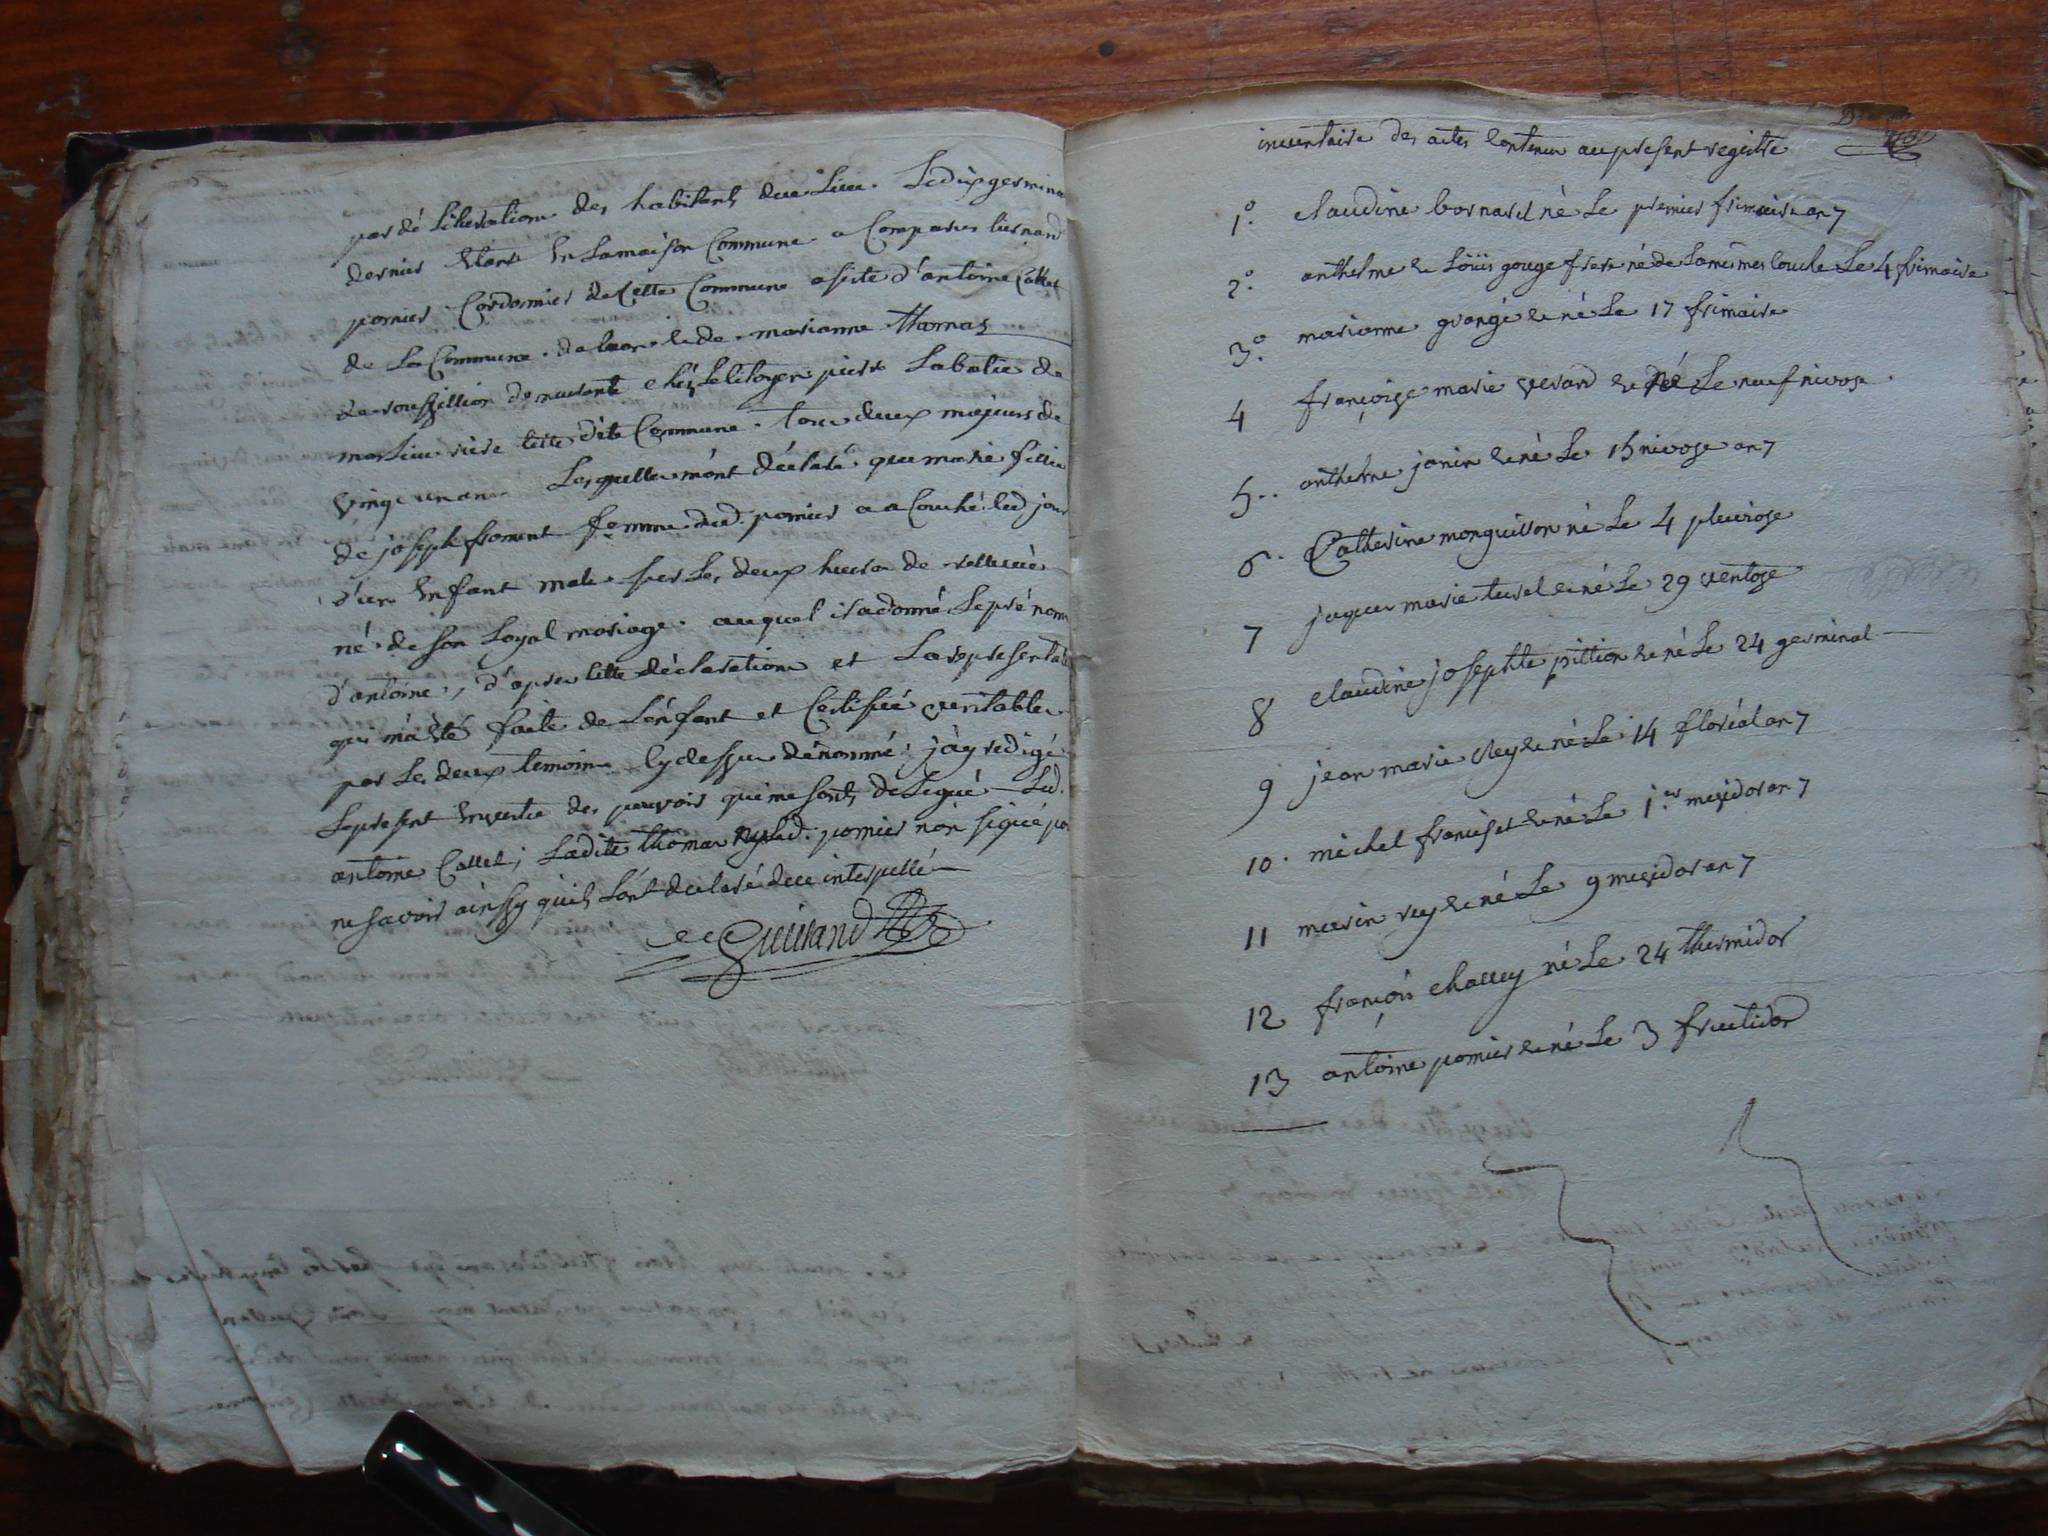 par dé Liberation des habitants due Lieu. Le dix germina
dernier étant En Lamaison Commune a Comparu bernard
pomier Cordonnier de Cette Commune asisté d'antoine Callet
de La Commune de et de marianne thomas
de roussillion demeurante chéz Le Citoyen pierre Labatie de
cette ditte Commune. tous deux majeurs de
vingt un ans Lesquelles m'ont déclaré que marie fillie
de joseph froment femme dud. pomier a a Couché led jour
d'un Enfant male sur Les deux heures de
né de son Loyal mariage. auquel il a donné Le pré nom
d'antoine, d'apres Cette déclaration et La representa
qui m'a été faite de L'enfant et Certifié veritable
par Les deux temoins Cy dessus dénommé, j'ay redigé
Le present En vertu des pouvoir qui me sont délégué Led.
antoine Callet, Ladite thomas ny led. pomier non signé po
ne savoir ainssy quils L'ont declaré de ce interpellé
Guirand
inventaire des actes Contenu au present registre
1° claudine bornard né Le premier frimaire an 7
2° anthelme et Loüis gouge frere né de Lamémes Couche Le 4 frimaire
3° marianne grangé et né Le 17 frimaire
4 françoise marie verand et né Le neuf nivose
5.. anthelme janin et né Le 15 nivose an 7
6. Catherine monguisson né Le 4 pluviose
7 jaques marie turel et né Le 29 ventose
8 claudine josephte pittion et né Le 24 germinal
9 jean marie Rey et né Le 14 floréal an 7
10. michel françiset et né Le 1.er mesidor an 7
11 marin rey et né Le 9 mesidor an 7
12 françois challey né Le 24 thermidor
13 antoine pomier et né Le 3 fructidor